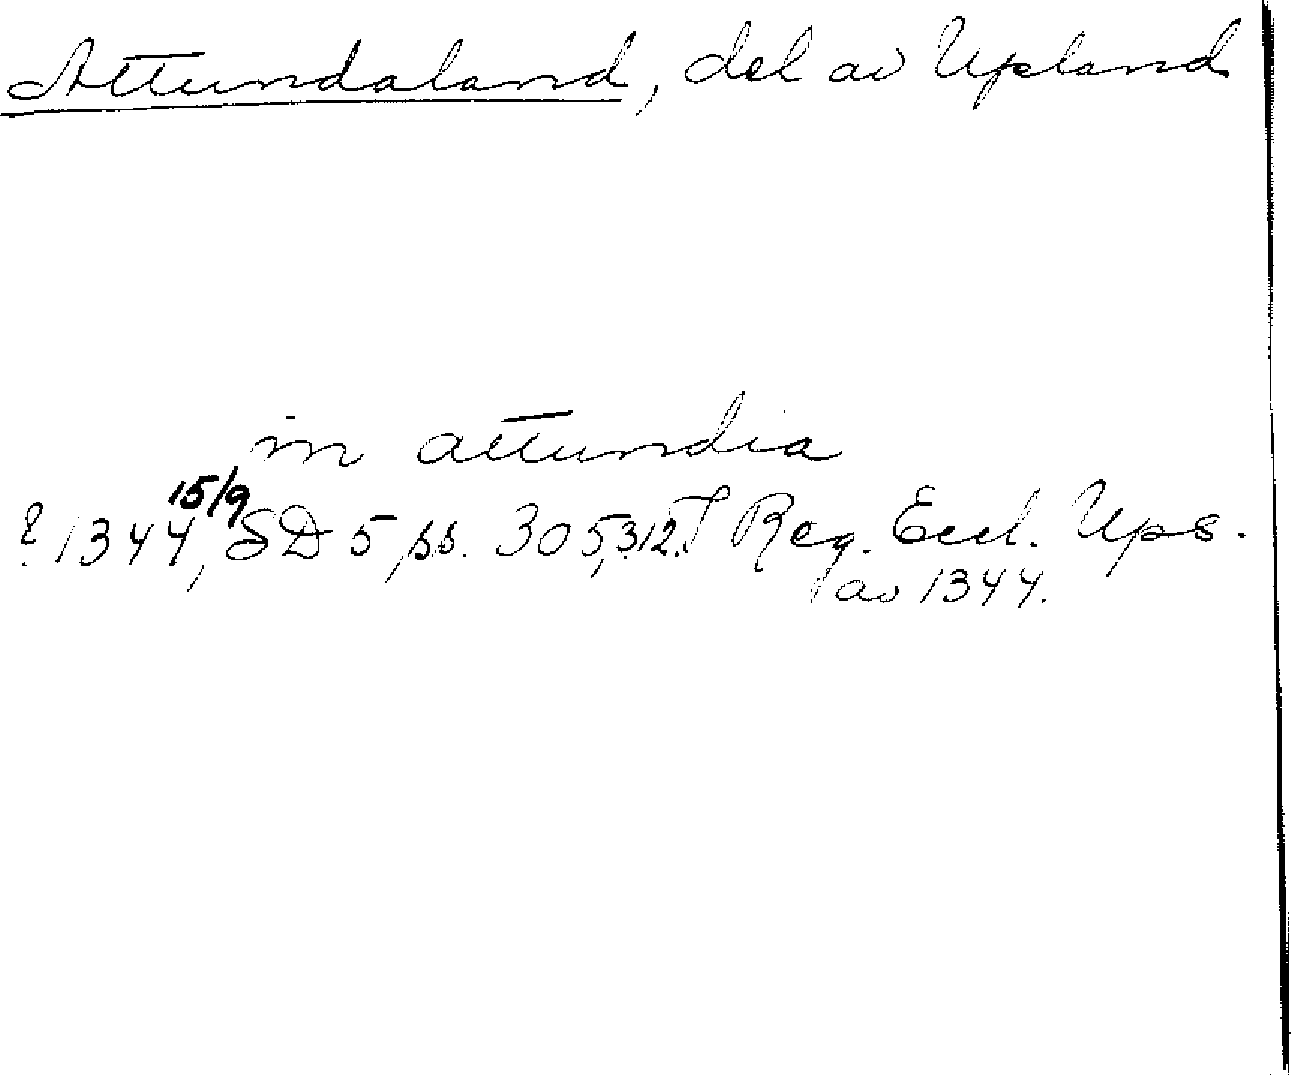 Attundaland, del av Upland
in attundia
? 1344 15/9, SD 5 ss. 305, 312. I Reg. Eccl. Ups.
av 1344.